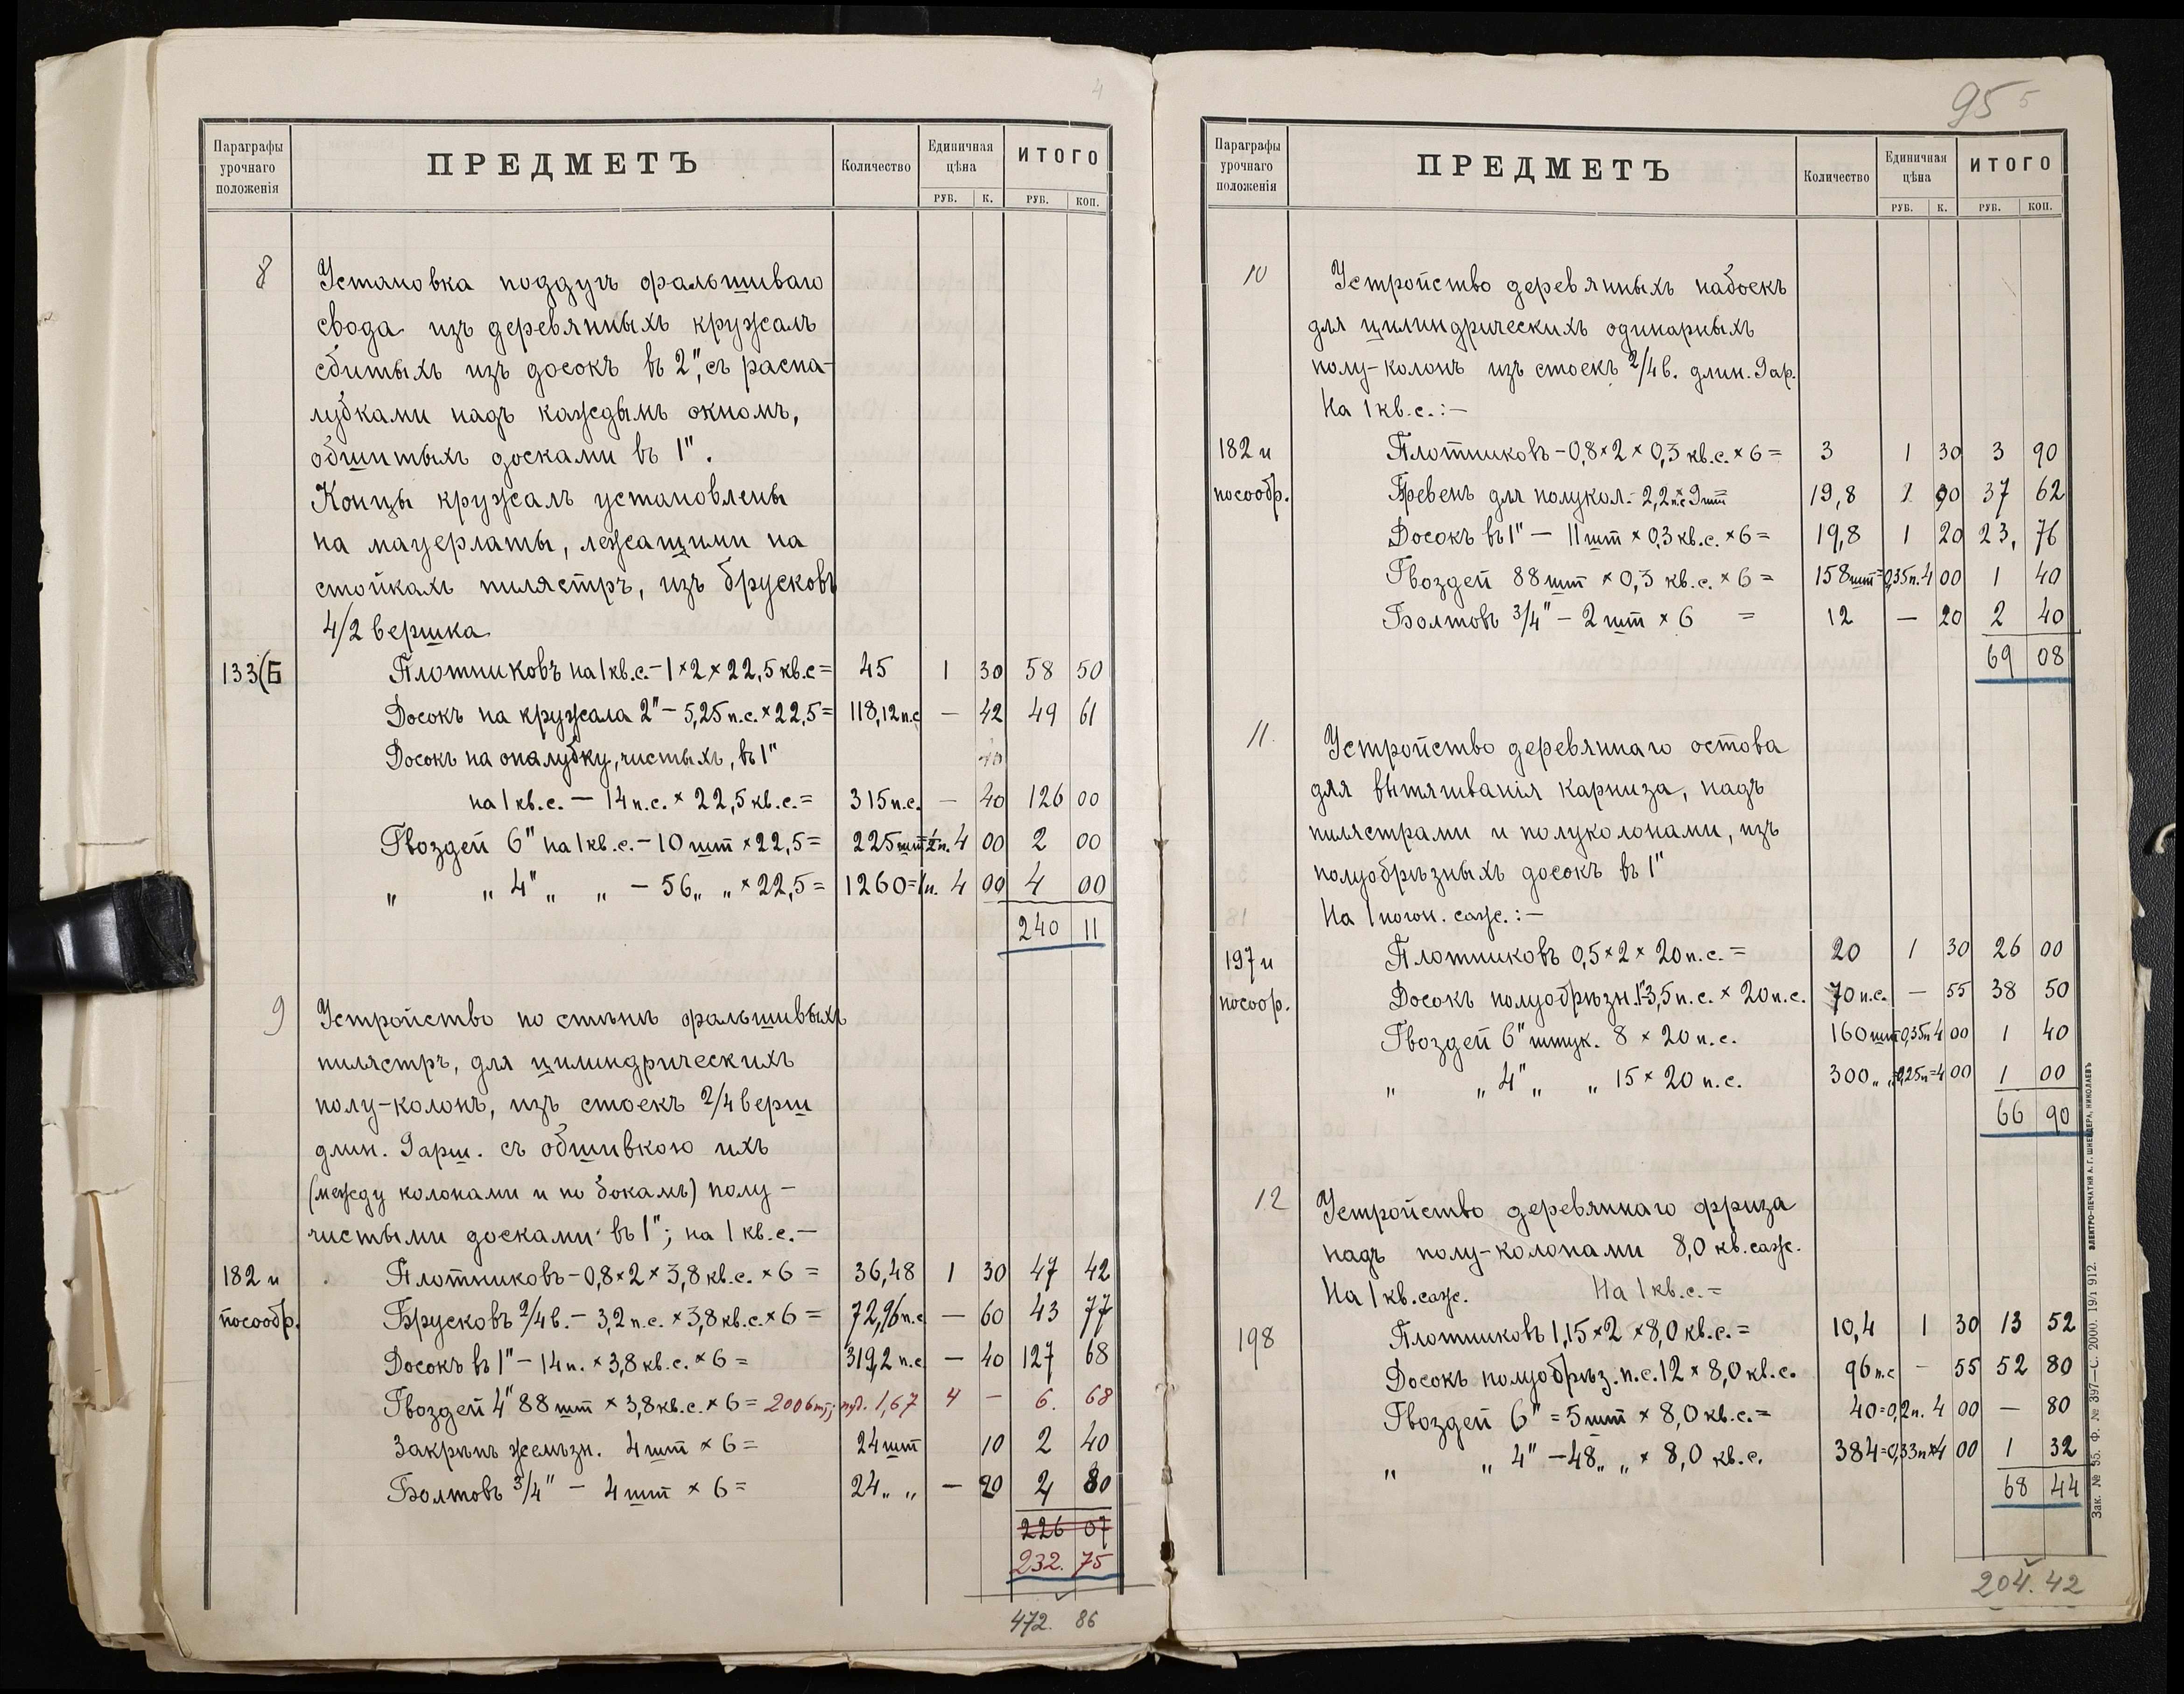 4
Параграфы урочнаго положенія
ПРЕДМЕТЪ
Количество
Единичная цѣна
ИТОГО
РУБ. К. РУБ. КОП.
8 Установка поддугъ фальшиваго
свода изъ деревянныхъ кружалъ
сбитыхъ изъ досокъ въ 2", съ распа-
лубками надъ каждымъ окномъ,
обшитыхъ досками въ 1".
Концы кружалъ установлены
на мауерлаты, лежащими на
стойкахъ пилястръ, изъ брусковъ
4/2 вершка
133(Б Плотниковъ на 1 кв.с. – 1 × 2 × 22,5 кв.с = 45 1 30 58 50
Досокъ на кружала 2" – 5,25 п.с. × 22,5 = 118,12 п.с — 42 49 61
Досокъ на опалубку, чистыхъ, въ 1"
на 1 кв.с. — 14 п.с. × 22,5 кв.с. = 315 п.с. — 40 126 00
Гвоздей 6" на 1 кв.с. – 10 шт × 22,5 = 225 шт = ½ п. 4 00 2 00
" " 4" " " – 56 " " × 22,5 = 1260 = 1 п. 4 00 4 00
240 11
9 Устройство по стѣнѣ фальшивыхъ
пилястръ, для цилиндрическихъ
полу-колонъ, изъ стоекъ 2/4 верш
длин. 9 арш. съ обшивкою ихъ
(между колонами и по бокамъ) полу –
чистыми досками въ 1"; на 1 кв.с. —
182 и Плотниковъ – 0,8 × 2 × 3,8 кв.с. × 6 = 36,48 1 30 47 42
посообр. Брусковъ 2/4 в. – 3,2 п.с. × 3,8 кв.с. × 6 = 72,96 п.с — 60 43 77
Досокъ въ 1" – 14 п. × 3,8 кв.с. × 6 = 319,2 п.с — 40 127 68
Гвоздей 4" 88 шт × 3,8 кв.с. × 6 = 2006 шт; пуд. 1,67 4 — 6. 68
Закрѣпъ желѣзн. 4 шт × 6 = 24 шт 10 2 40
Болтовъ 3/4" – 4 шт × 6 = 24 " " — 20 4 80
226 07
232. 75
472. 86
95 5
Параграфы урочнаго положенія
ПРЕДМЕТЪ
Количество
Единичная цѣна
ИТОГО
РУБ. К. РУБ. КОП.
10 Устройство деревянныхъ набоекъ
для цилиндрическихъ одинарныхъ
полу-колонъ изъ стоекъ 2/4 в. длин. 9 ар.
На 1 кв.с.: —
182 и Плотниковъ – 0,8 × 2 × 0,3 кв.с. × 6 = 3 1 30 3 90
посообр. Бревенъ для полукол. – 2,2 п.с × 9 шт 19,8 1 90 37 62
Досокъ въ 1" — 11 шт × 0,3 кв.с. × 6 = 19,8 1 20 23, 76
Гвоздей 88 шт × 0,3 кв.с. × 6 = 158 шт = 0,35 п. 4 00 1 40
Болтовъ 3/4" – 2 шт × 6 = 12 — 20 2 40
69 08
11. Устройство деревяннаго остова
для вытягиванія карниза, надъ
пилястрами и полуколонами, изъ
полуобрѣзныхъ досокъ въ 1"
На 1 погон. саж.: —
197 и Плотниковъ 0,5 × 2 × 20 п.с. = 20 1 30 26 00
посообр. Досокъ полуобрѣзн. 1" – 3,5 п.с. × 20 п.с. 70 п.с. — 55 38 50
Гвоздей 6" штук. 8 × 20 п.с. 160 шт 0,35 п 4 00 1 40
" " 4" " " 15 × 20 п.с. 300 " = 0,25 п = 4 00 1 00
66 90
12 Устройство деревяннаго фриза
надъ полу-колонами 8,0 кв.саж.
На 1 кв.саж. На 1 кв.с. =
198 Плотниковъ 1,15 × 2 × 8,0 кв.с. = 10,4 1 30 13 52
Досокъ полуобрѣз. п.с. 12 × 8,0 кв.с. 96 п.с – 55 52 80
Гвоздей 6" = 5 шт × 8,0 кв.с. = 40 = 0,2 п. 4 00 — 80
" " 4" – 48 " " × 8,0 кв.с. 384 = 0,33 п × 4 00 1 32
68 44
204. 42
Зак. № 95. Ф. № 397—С. 2000. 19/I 912. ЭЛЕКТРО-ПЕЧАТНЯ А. Г. ШНЕЙДЕРА, НИКОЛАЕВЪ